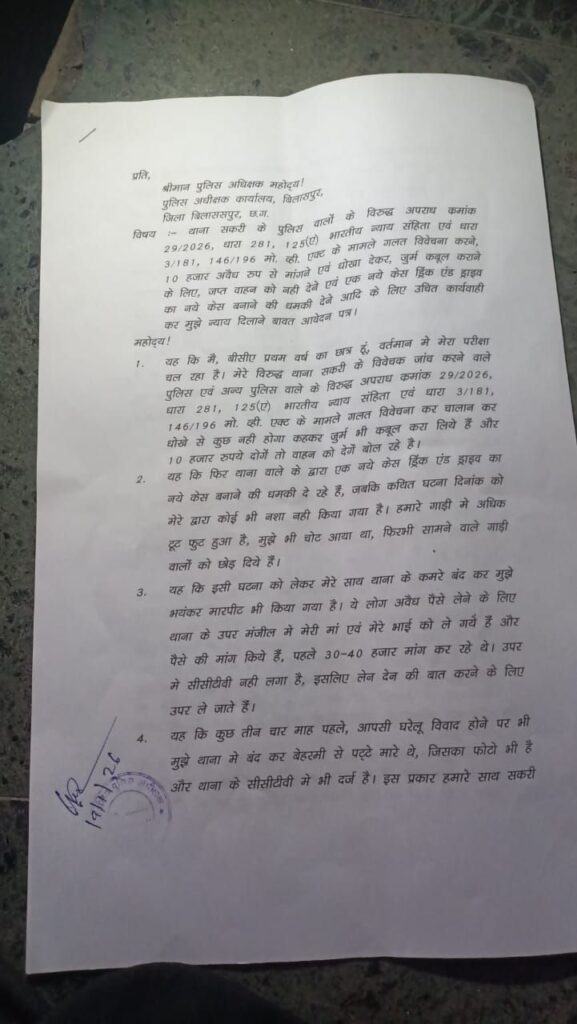 प्रति,
श्रीमान पुलिस अधिक्षक महोदय!
पुलिस अधीक्षक कार्यालय, बिलासपुर,
जिला बिलाससपुर, छ.ग.
विषय :- थाना सकरी के पुलिस वालों के विरुद्ध अपराध कमांक
29/2026, धारा 281, 125(ऐ) भारतीय न्याय संहिता एवं धारा
3/181, 146/196 मो. व्ही. एक्ट के मामले गलत विवेचना करने,
10 हजार अवैध रुप से मांगने एवं धोखा देकर, जुर्म कबूल कराने
के लिए, जप्त वाहन को नही देने एवं एक नये केस ड्रिंक एंड ड्राइव
का नये केस बनाने की धमकी देने आदि के लिए उचित कार्यवाही
कर मुझे न्याय दिलाने बावत आवेदन पत्र।
महोदय!
1. यह कि मै, बीसीए प्रथम वर्ष का छात्र हूं, वर्तमान मे मेरा परीक्षा
चल रहा है। मेरे विरुद्ध थाना सकरी के विवेचक जांच करने वाले
पुलिस एवं अन्य पुलिस वाले के विरुद्ध अपराध कमांक 29/2026,
धारा 281, 125(ऐ) भारतीय न्याय संहिता एवं धारा 3/181,
146/196 मो. व्ही. एक्ट के मामले गलत विवेचना कर चालान कर
धोखे से कुछ नही होगा कहकर जुर्म भी कबूल करा लिये हैं और
10 हजार रुपये दोगें तो वाहन को देगें बोल रहे है।
2. यह कि फिर थाना वाले के द्वारा एक नये केस ड्रिंक एंड ड्राइव का
नये केस बनाने की धमकी दे रहे हैं, जबकि कथित घटना दिनांक को
मेरे द्वारा कोई भी नशा नही किया गया है। हमारे गाड़ी मे अधिक
टूट फुट हुआ है, मुझे भी चोट आया था, फिरभी सामने वाले गाड़ी
वालों को छोड़ दिये हैं।
3. यह कि इसी घटना को लेकर मेरे साथ थाना के कमरे बंद कर मुझे
भयंकर मारपीट भी किया गया है। ये लोग अवैध पैसे लेने के लिए
थाना के उपर मंजील मे मेरी मां एवं मेरे भाई को ले गये हैं और
पैसे की मांग किये हैं, पहले 30-40 हजार मांग कर रहे थे। उपर
मे सीसीटीवी नही लगा है, इसलिए लेन देन की बात करने के लिए
उपर ले जाते हैं।
4. यह कि कुछ तीन चार माह पहले, आपसी घरेलू विवाद होने पर भी
मुझे थाना मे बंद कर बेहरमी से पट्टे मारे थे, जिसका फोटो भी है
और थाना के सीसीटीवी मे भी दर्ज है। इस प्रकार हमारे साथ सकरी